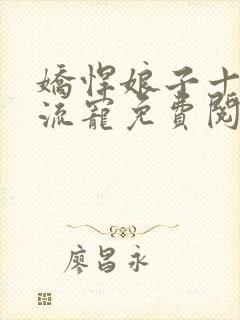 嬌悍娘子十
流寵免費閱
廖昌永